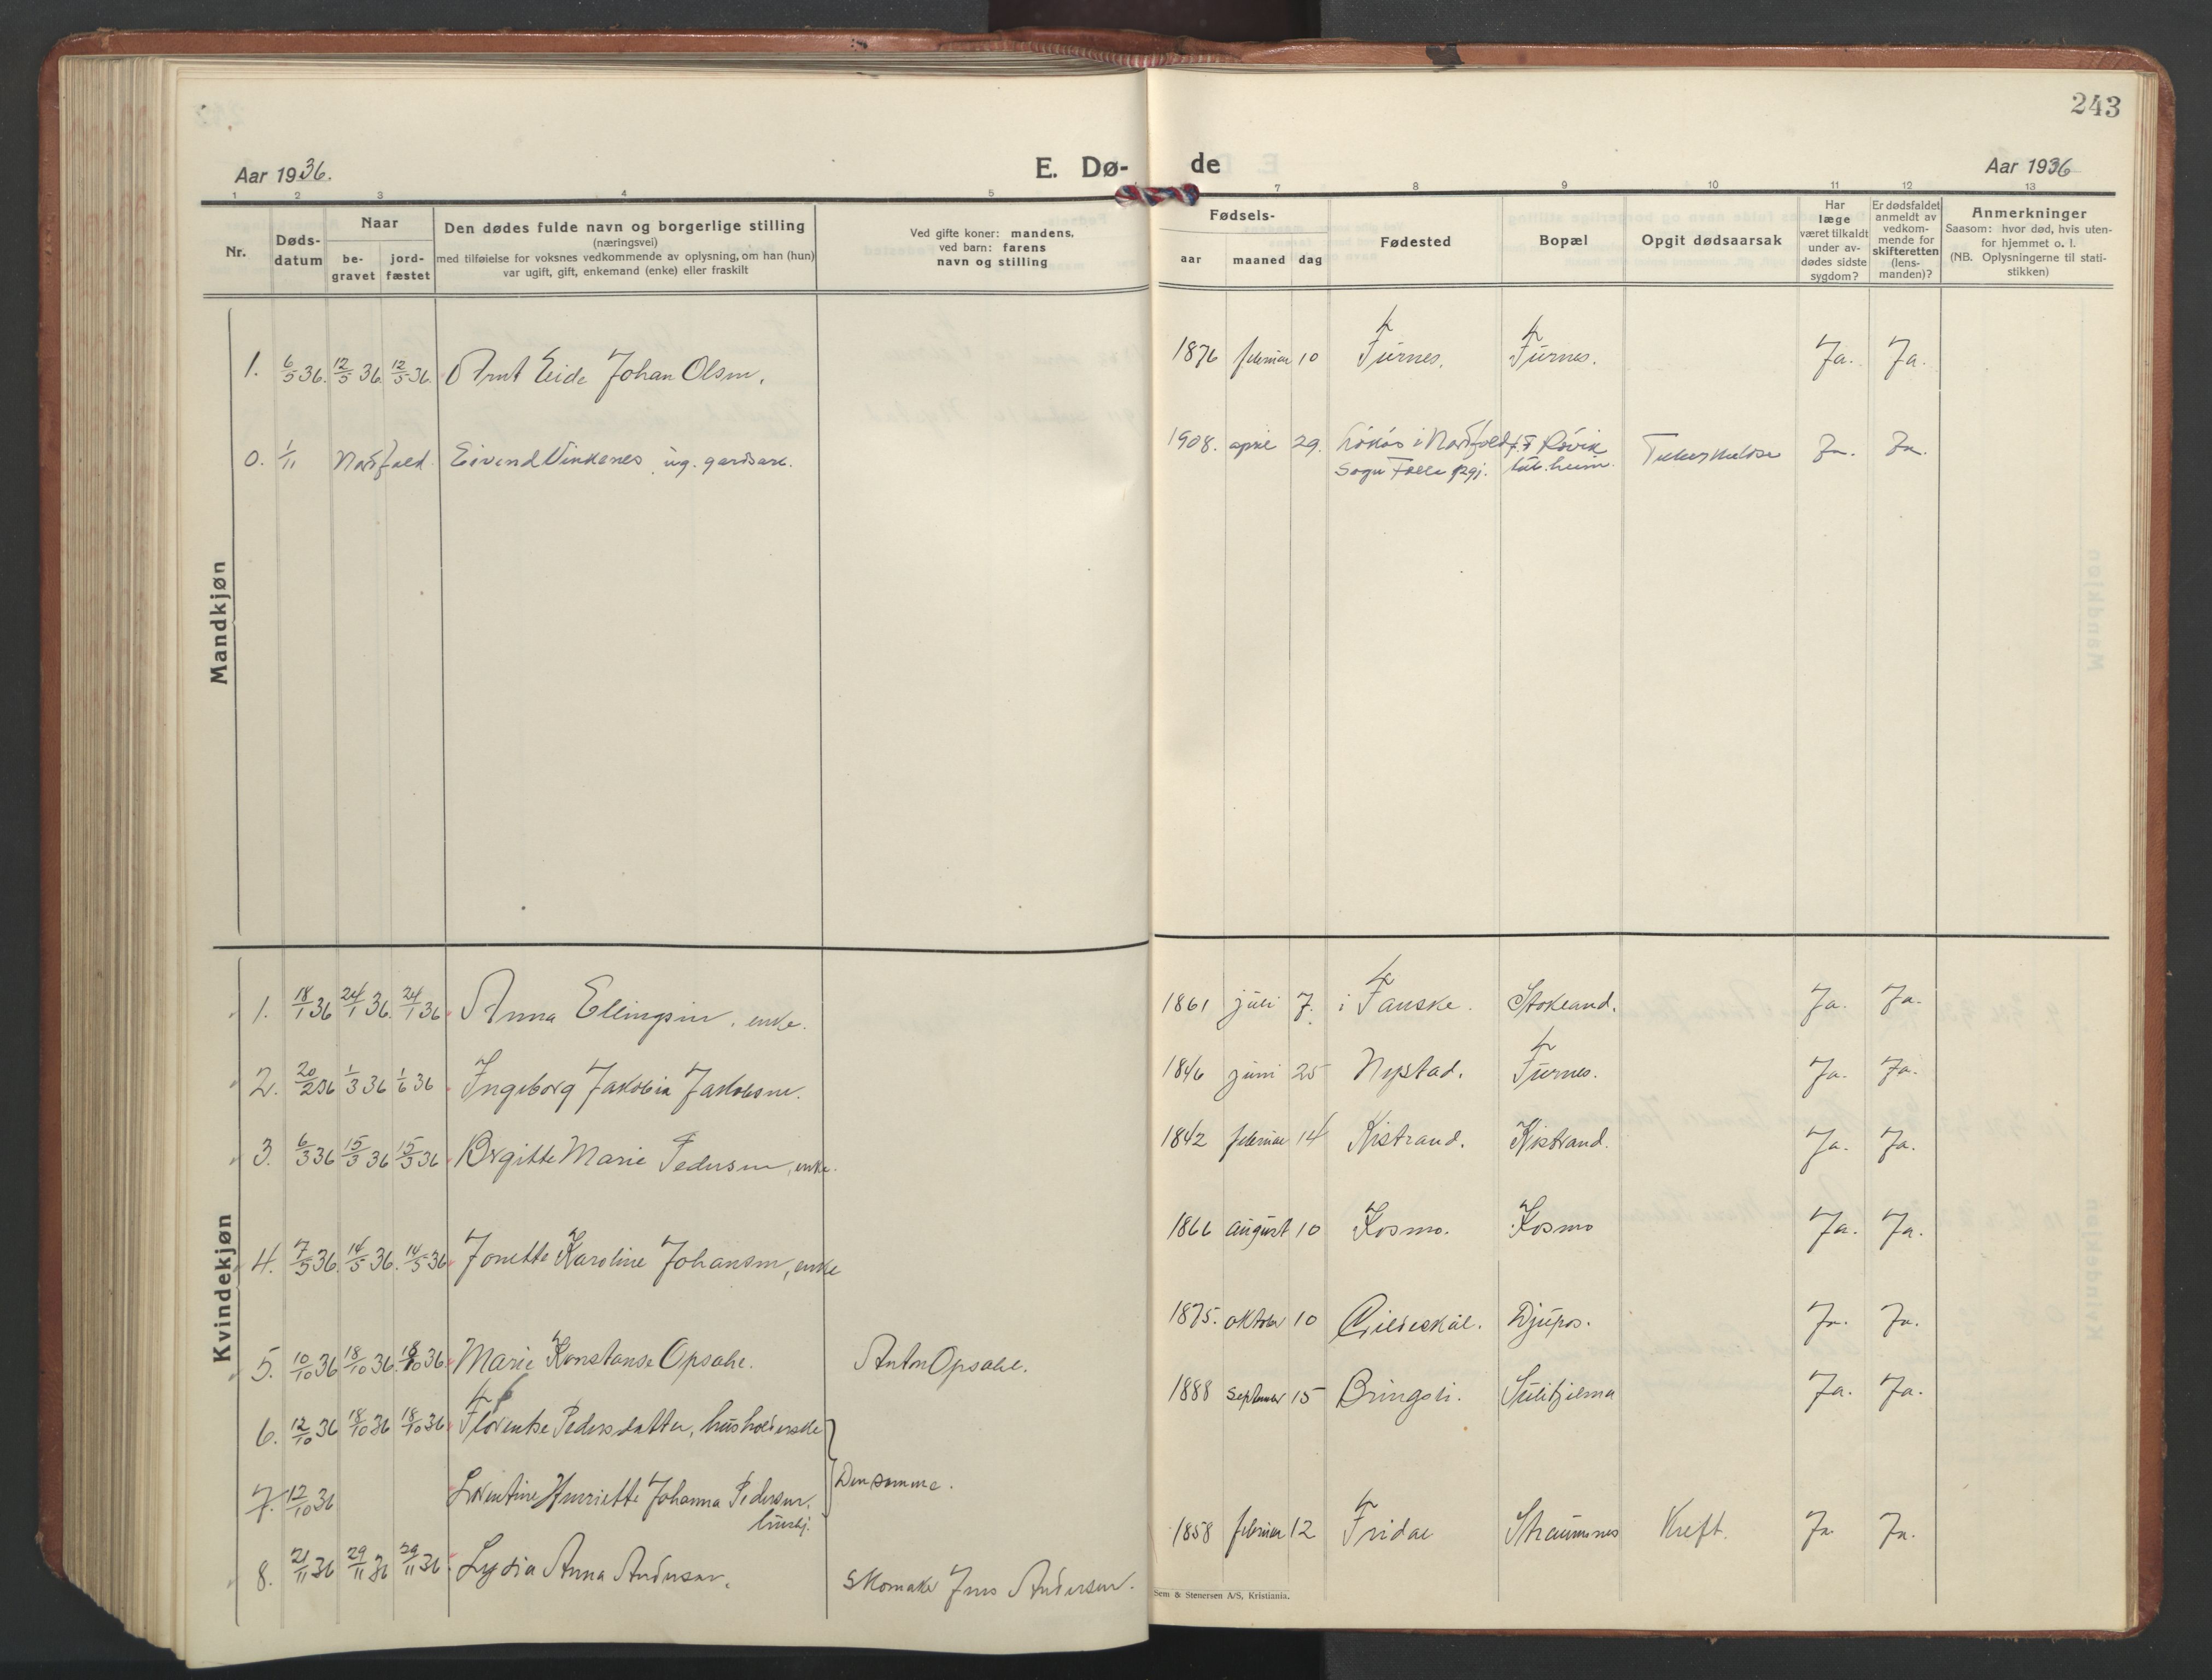 243
Aar 1936.
E. Dø-
de
Aar 1936
1 2 3 4 5 7 8 9 10 11 12 13
Nr.
Døds-
datum
Naar
be-
gravet
jord-
fæstet
Den dødes fulde navn og borgerlige stilling
(næringsvei)
med tilføielse for voksnes vedkommende av oplysning, om han (hun)
var ugift, gift, enkemand (enke) eller fraskilt
Ved gifte koner: mandens,
ved barn: farens
navn og stilling
Fødsels-
aar maaned dag
Fødested
Bopæl
Opgit dødsaarsak
Har
læge
været tilkaldt
under av-
dødes sidste
sygdom?
Er dødsfaldet
anmeldt av
vedkom-
mende for
skifteretten
(lens-
manden)?
Anmerkninger
Saasom: hvor død, hvis uten-
for hjemmet o. l.
(NB. Oplysningerne til stati-
stikken)
Mandkjøn
1. 6/5 36. 12/5 36. 12/5 36. Arnt Eide Johan Olsen. 1876 februar 10 Furnes. Furnes. Ja. Ja.
0. 1/11 Nordfold Eivind Vinkenes ug. gardsarb. 1908. april 29. i Nordfold Røvik Tuberkulose Ja. Ja.
sogn Folla pgj. tub. heim.
Kvindekjøn
1. 18/1 36 24/1 36. 24/1 36 Anna Ellingsen, enke. 1861 juli 7. i Fauske. Stokland. Ja. Ja.
2. 20/2 36 1/3 36 1/6 36 Ingeborg Jakobia Jakobsen. 1846 juni 25 Nystad. Furnes. Ja. Ja.
3. 6/3 36 15/3 36 15/3 36 Brgitte Marie Pedersen, enke. 1842 februar 14 Kistrand. Kistrand. Ja. Ja.
4. 7/5 36. 14/5 36. 14/5 36 Jonette Karoline Johansen, enke 1866 august 10 Kosmo. Kosmo Ja. Ja.
5. 10/10 36 18/10 36. 18/10 36. Marie Konstanse Opsahl. Anton Opsahl. 1875. oktober 10 Gildeskål. Djupos. Ja. Ja.
6. 12/10 36 18/10 36 18/10 36 Florentse Pedersdatter, husholderske 1888 september 15 Bringsli. Sulitjelma Ja. Ja.
7. 12/10 36 Lorentine Henriette Johanna Pedersen, Den samme.
hush.
8. 21/11 36 29/11 36 29/11 36. Lydia Anna Andersen. Skomaker Jens Andersen. 1858 februar 12 Fridal Straumnes Kreft. Ja Ja.
Sem & Stenersen A/S, Kristiania.